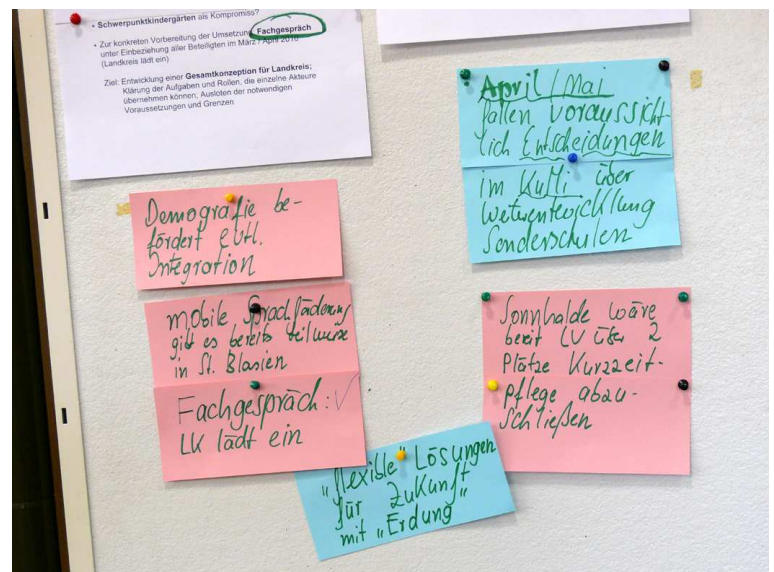 • Schwerpunktkindergärten als Kompromiss?
• Zur konkreten Vorbereitung der Umsetzung Fachgespräch
unter Einbeziehung aller Beteiligten im März / April 2010
(Landkreis lädt ein)
Ziel: Entwicklung einer Gesamtkonzeption für Landkreis;
Klärung der Aufgaben und Rollen, die einzelne Akteure
übernehmen können; Ausloten der notwendigen
Voraussetzungen und Grenzen
April / Mai
fallen voraussicht-
lich Entscheidungen
im KuMi über
Weiterentwicklung
Sonderschulen
Demografie be-
fördert evtl.
Integration
mobile Sprachförderung
gibt es bereits teilweise
in St. Blasien
Fachgespräch: ✓
LK lädt ein
Sonnhalde wäre
bereit LV über 2
Plätze Kurzzeit-
pflege abzu-
schließen
"flexible" Lösungen
für Zukunft
mit "Erdung"